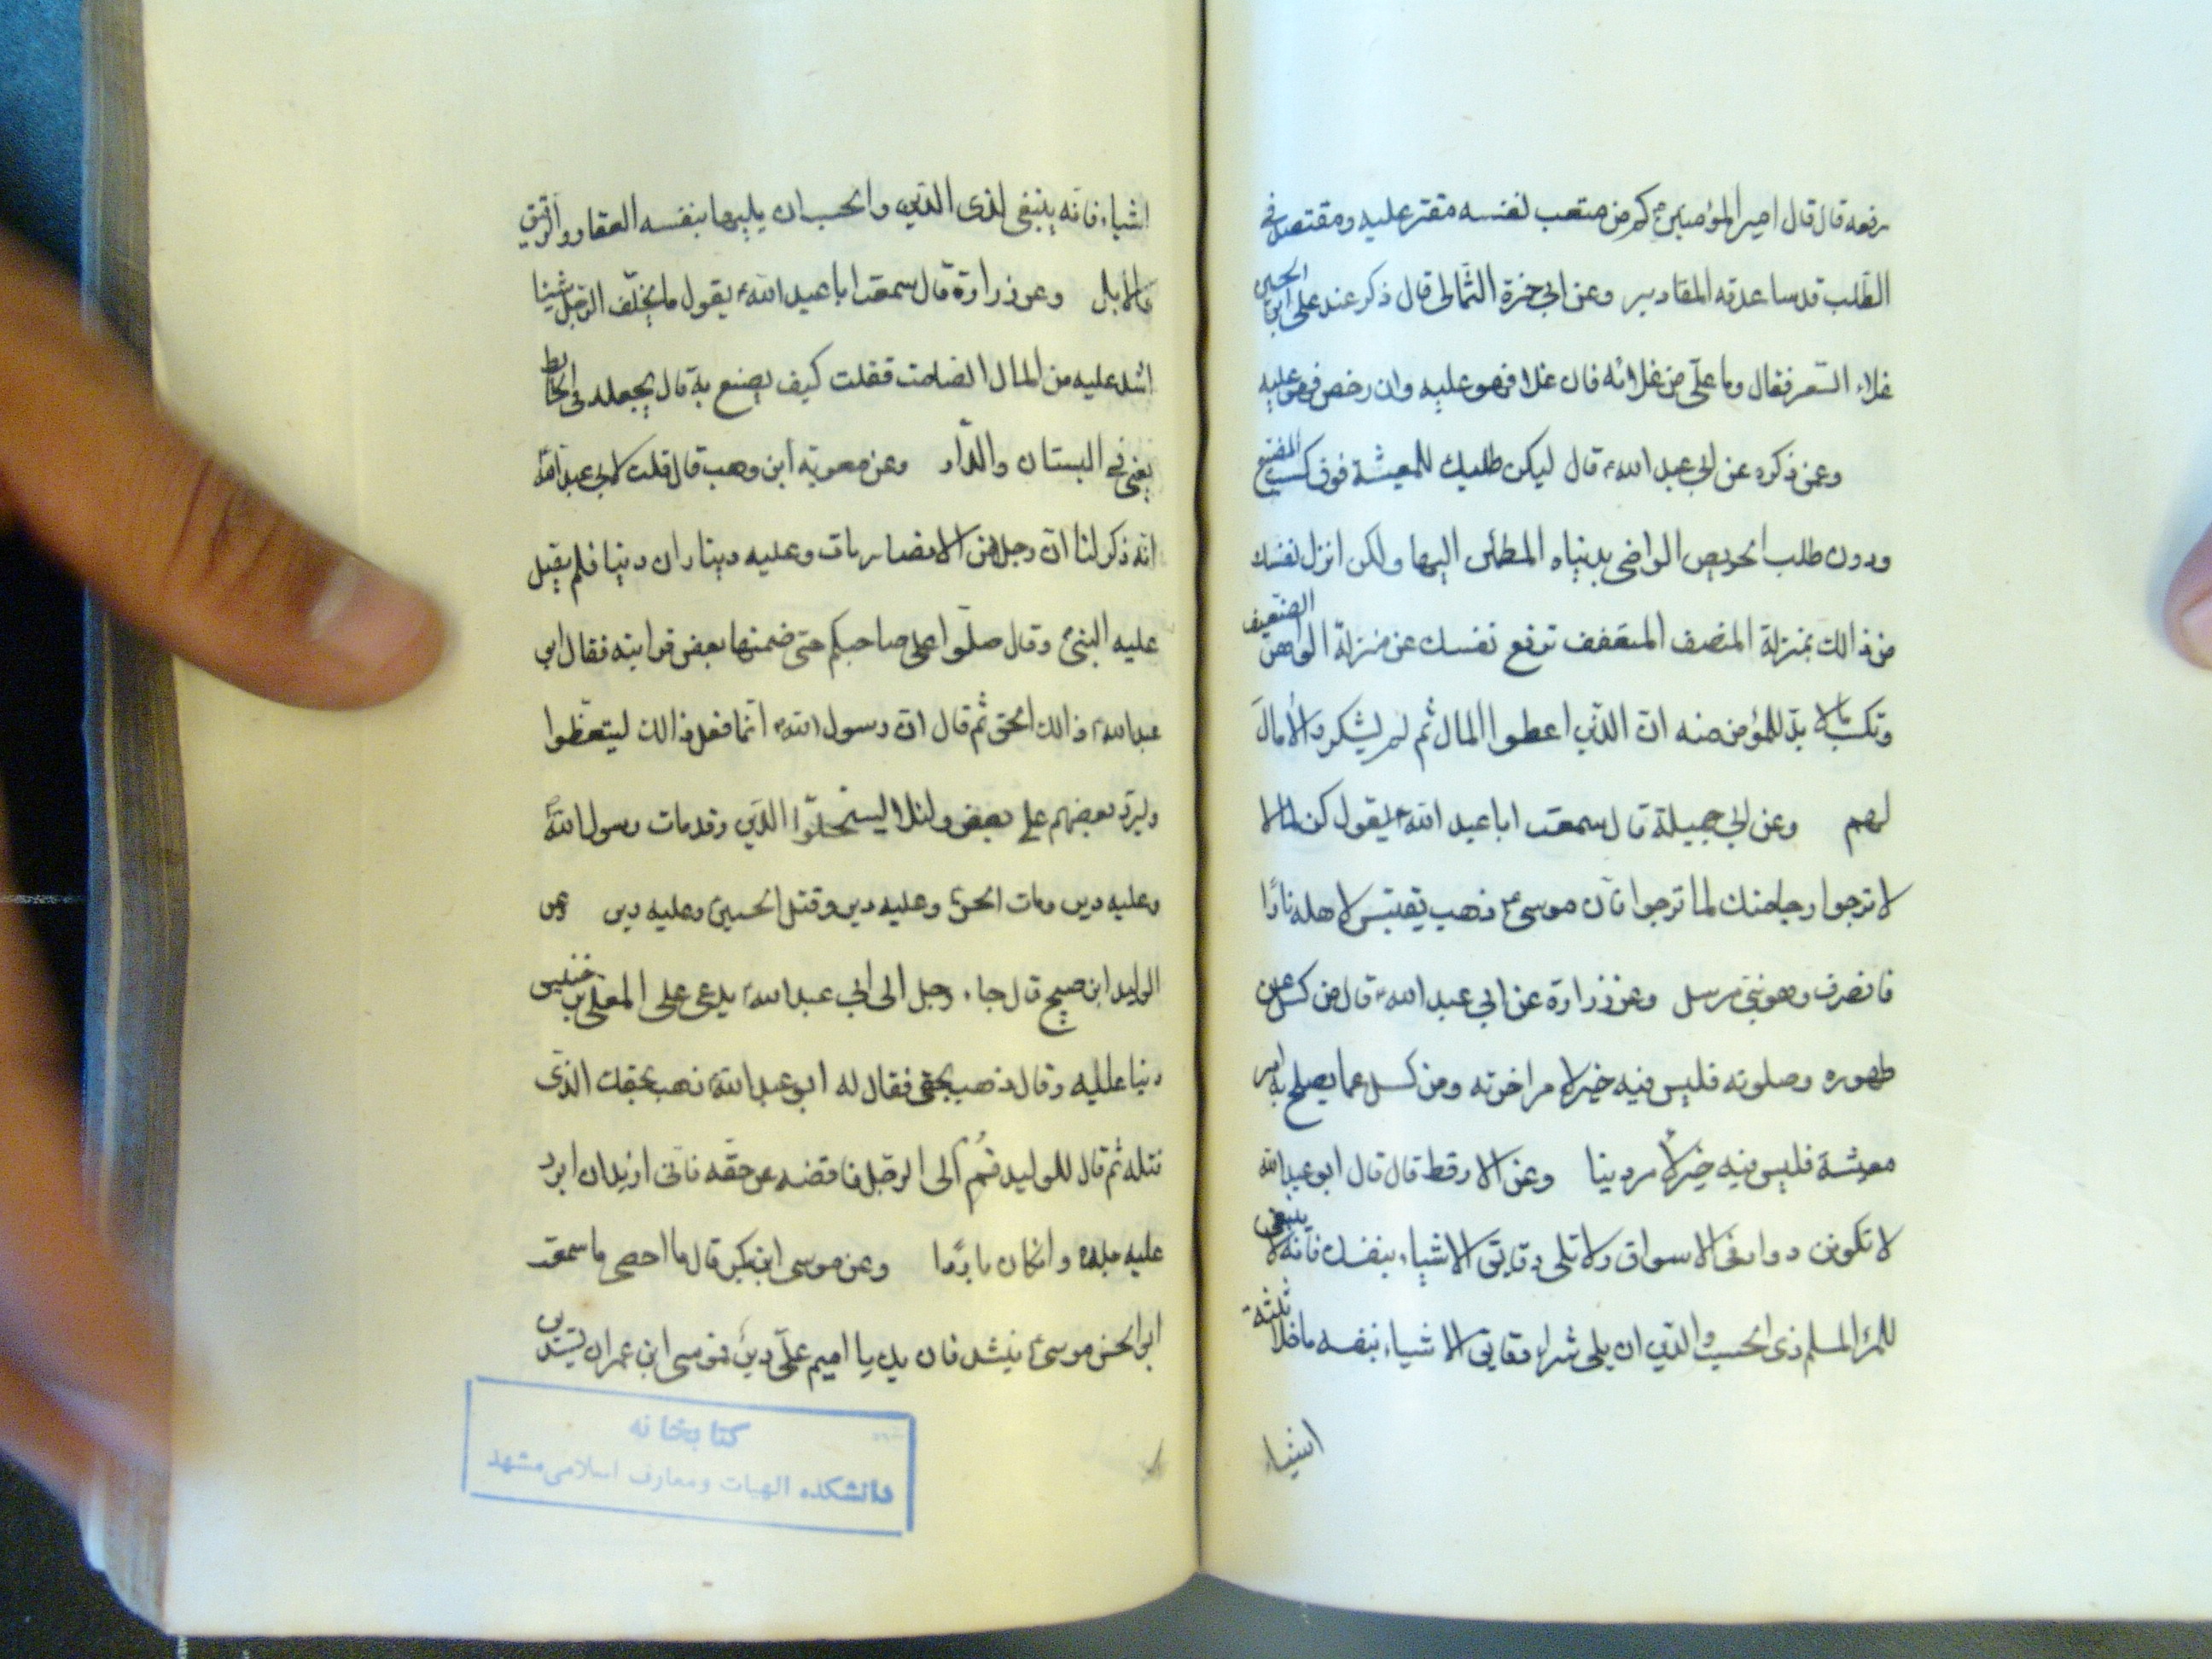 رفعه قال قال امير المؤمنين ع كم من متعب لنفسه مقتر عليه ومقتصد في
الطلب قد ساعدته المقادير وعن ابي حمزة الثمالي قال ذكر عند علي ابن الحسين
غلاء السعر فقال وما علّي من غلائه فان غلا فهو عليه وان رخص فهو عليه
وعمن ذكره عن ابي عبد الله ع قال ليكن طلبك للمعيشة فوق كسب المضيع
ودون طلب الحريص الراضي بدنياه المطمئن اليها ولكن انزل نفسك
من ذالك بمنزلة المنصف المتعفف ترفع نفسك عن منزلة الواهن الضعيف
وتكسب مالا بدّ للمؤمن منه انّ الذين اعطوا المال ثم لم يشكروا لا مال
لهم وعن ابي جميلة قال سمعت ابا عبد الله ع يقول كن لما لا
لا ترجوا رجا منك لما ترجوا فان موسى ع ذهب يقتبس لاهله نارًا
فانصرف وهو نبيّ مرسل وعن زرارة عن ابي عبد الله ع قال من كسل عن
طهوره وصلوته فليس فيه خير لامر اخرته ومن كسل عما يصلح به امر
معيشة فليس فيه خير لامر دينا وعن الارقط قال قال ابو عبد الله
لا تكونن دوارا في الاسواق ولا تلى دقايق الاشياء بنفسك فانه لا ينبغي
للمرء المسلم ذى الحسب والدّين ان يلى شراء دقايق الاشياء بنفسه ما خلا ثلثة
اشياء
اشياء فانه ينبغي لذى الدّين والحسب ان يليها بنفسه العقار والرقيق
والابل وعن زرارة قال سمعت ابا عبد الله ع يقول ما يخلّف الرّجل شيئا
اشد عليه من المال الصامت فقلت كيف يصنع به قال يجعله في الحايط
يعنى في البستان والدّار وعن معوية ابن وهب قال قلت لابي عبد الله
انه ذكر لنا انّ رجلا من الانصار مات وعليه ديناران دينا فلم يقبل
عليه النبيّ وقال صلّوا على صاحبكم حتى ضمنها بعض قرابته فقال ابي
عبد الله ع ذالك الحق ثم قال انّ رسول الله انما فعل ذالك ليتعظوا
وليرد بعضهم على بعض ولئلا ليستحفّوا الدّين وقد مات رسول الله
وعليه دين ومات الحسن وعليه دين وقتل الحسين وعليه دين وعن
الوليد ابن صبيح قال جاء رجل الى ابي عبد الله ع يدعى على المعلى بن خنيس
دينا عليه وقال ذهب بحقي فقال له ابو عبد الله ذهب بحقك الذى
قتله ثم قال للوليد قُم الى الرجل فاقضه عن حقه فانى اريد ان ابرد
عليه جلده وانكان باردًا وعن موسى ابن بكر قال ما احصى ما سمعت
ابي الحسن موسى ع ينشد فان يك يا اميم علّي دين فموسى ابن عمران يستدين
كتابخانه
دانشكده الهيات ومعارف اسلامى مشهد